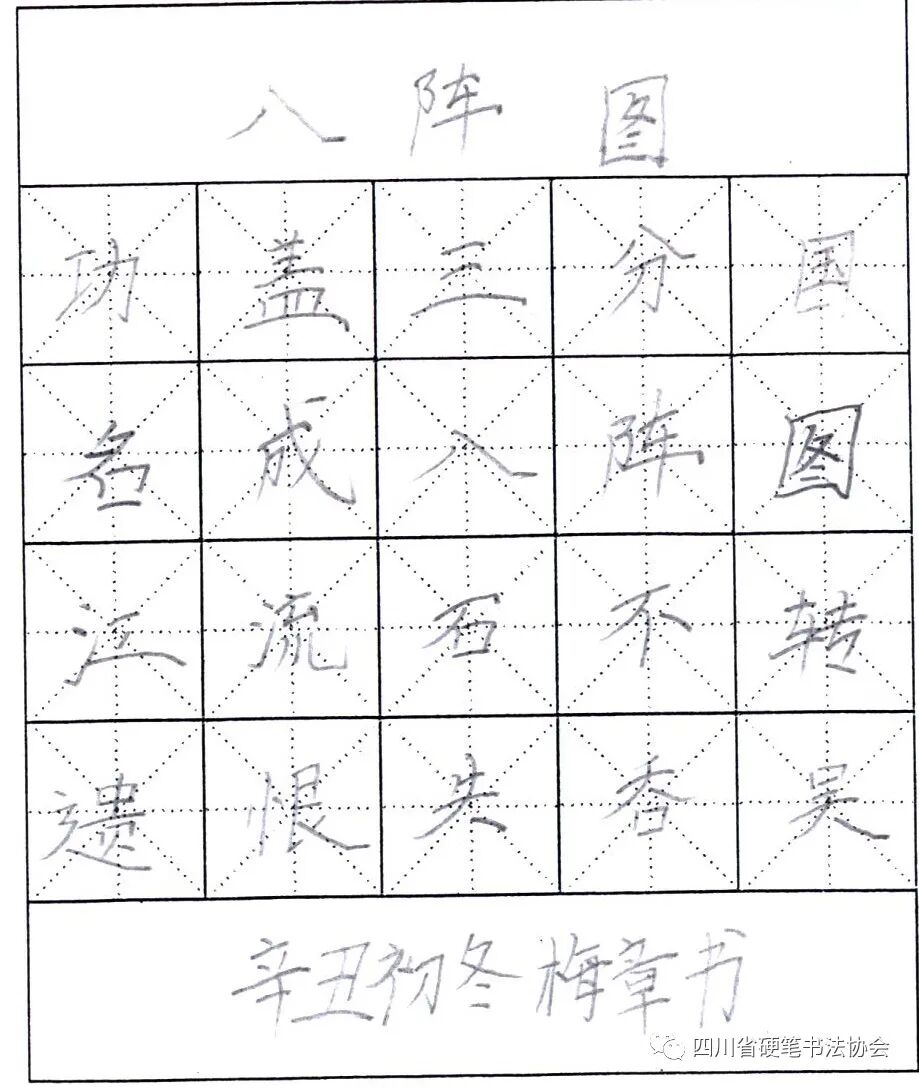 八阵图
功盖三分国
名成八阵图
江流石不转
遗恨失吞吴
辛丑初冬梅章书
四川省硬笔书法协会